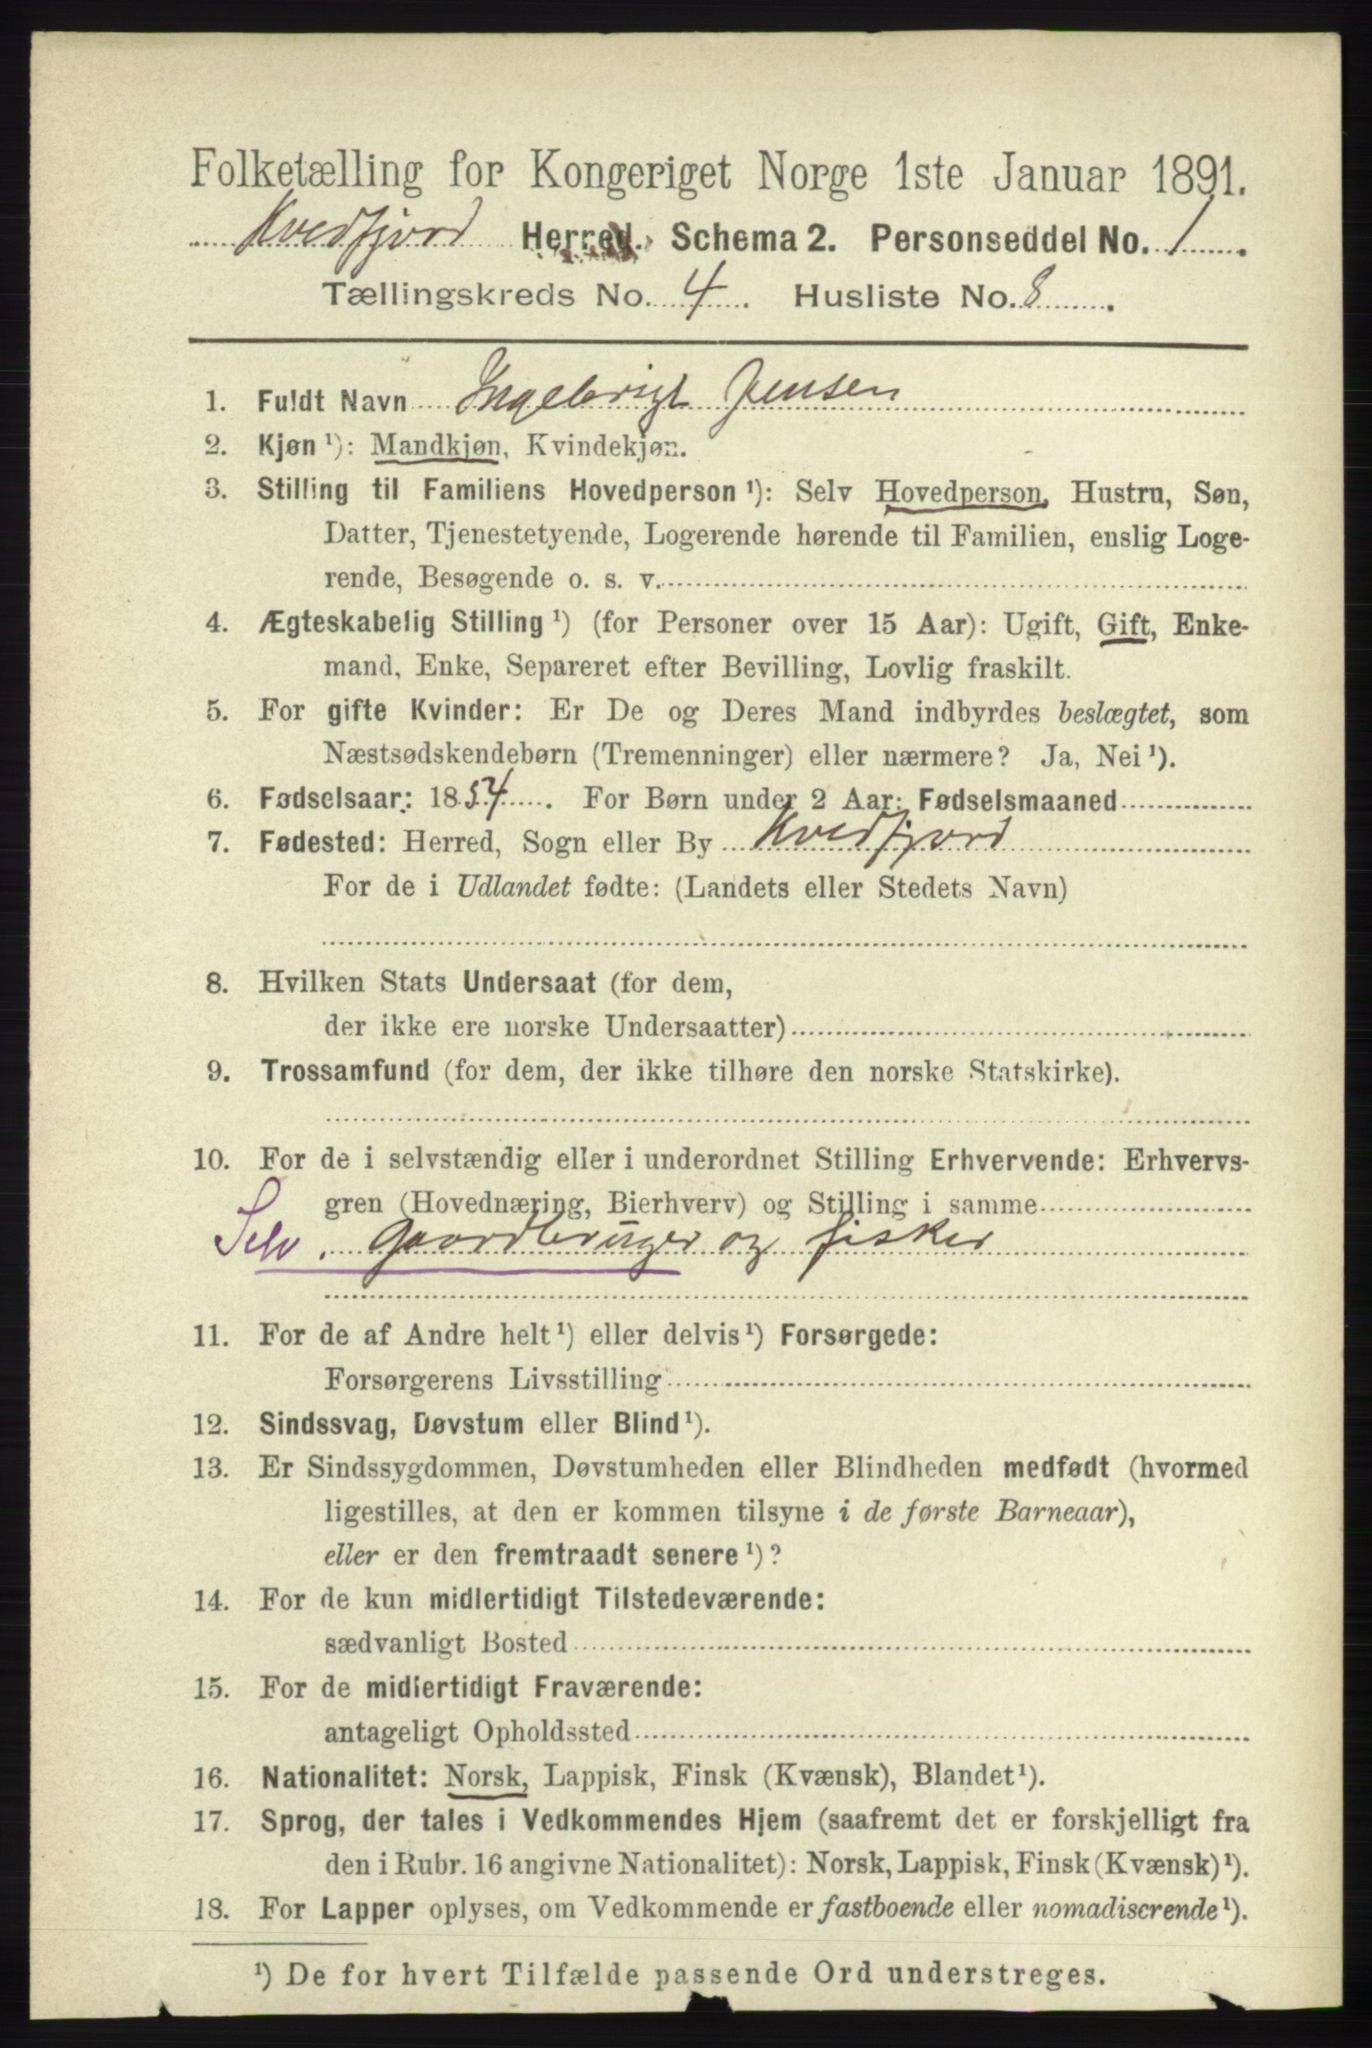 Folketælling for Kongeriget Norge 1ste Januar 1891.
Kvedfjord Herred. Schema 2. Personseddel No. 1.
Tællingskreds No. 4. Husliste No. 8.
1. Fuldt Navn Ingebrigt Jensen
2. Kjøn ¹): Mandkjøn, Kvindekjøn.
3. Stilling til Familiens Hovedperson ¹): Selv Hovedperson, Hustru, Søn,
Datter, Tjenestetyende, Logerende hørende til Familien, enslig Loge-
rende, Besøgende o. s. v.
4. Ægteskabelig Stilling ¹) (for Personer over 15 Aar): Ugift, Gift, Enke-
mand, Enke, Separeret efter Bevilling, Lovlig fraskilt.
5. For gifte Kvinder: Er De og Deres Mand indbyrdes beslægtet, som
Næstsødskendebørn (Tremenninger) eller nærmere? Ja, Nei ¹).
6. Fødselsaar: 1854. For Børn under 2 Aar: Fødselsmaaned
7. Fødested: Herred, Sogn eller By Kvedfjord
For de i Udlandet fødte: (Landets eller Stedets Navn)
8. Hvilken Stats Undersaat (for dem,
der ikke ere norske Undersaatter)
9. Trossamfund (for dem, der ikke tilhøre den norske Statskirke).
10. For de i selvstændig eller i underordnet Stilling Erhvervende: Erhvervs-
gren (Hovednæring, Bierhverv) og Stilling i samme
Selv. gaardbruger og fisker
11. For de af Andre helt ¹) eller delvis ¹) Forsørgede:
Forsørgerens Livsstilling
12. Sindssvag, Døvstum eller Blind ¹).
13. Er Sindssygdommen, Døvstumheden eller Blindheden medfødt (hvormed
ligestilles, at den er kommen tilsyne i de første Barneaar),
eller er den fremtraadt senere ¹)?
14. For de kun midlertidigt Tilstedeværende:
sædvanligt Bosted
15. For de midlertidigt Fraværende:
antageligt Opholdssted
16. Nationalitet: Norsk, Lappisk, Finsk (Kvænsk), Blandet ¹).
17. Sprog, der tales i Vedkommendes Hjem (saafremt det er forskjelligt fra
den i Rubr. 16 angivne Nationalitet): Norsk, Lappisk, Finsk (Kvænsk) ¹).
18. For Lapper oplyses, om Vedkommende er fastboende eller nomadiserende ¹).
¹) De for hvert Tilfælde passende Ord understreges.